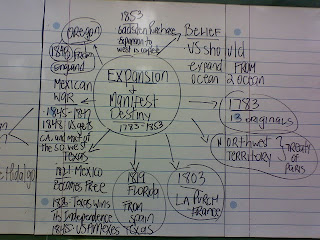 1853
Gadsden Purchase
Expansion to
west is complete
Belief
US should
expand FROM
ocean 2 ocean
Oregon
1846 From
England
Expansion
+
Manifest
Destiny
1783-1853
Mexican
War
1845-1848
1848 US gets
C.A. and most of
the SO. West
Texas
1821 Mexico
Becomes Free
1836 Texas wins
its Independence
1845 US Annexes Texas
1819
Florida
From
Spain
1803
LA PURCH
FRANCE
1783
13 originals
Northwest
Territory
Treaty
of
Paris